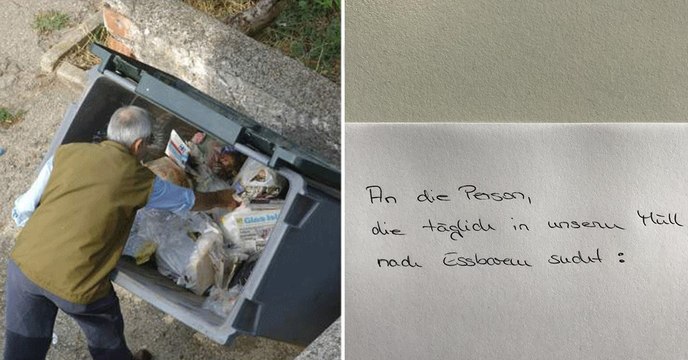 An die Person,
die täglich in unserm Müll
nach Essbarem sucht :